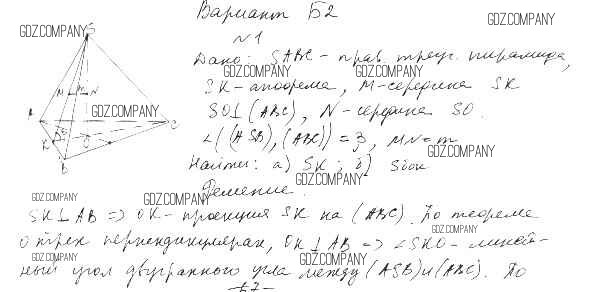 Вариант Б2
GDZ.COMPANY
GDZ.COMPANY
№1
Дано: SABC - прав. треуг. пирамида,
GDZ.COMPANY GDZ.COMPANY
SK - апофема, M - середина SK
SO⊥(ABC), N - середина SO.
GDZ.COMPANY
∠((ASB),(ABC)) = β, MN = m
GDZ.COMPANY
Найти: а) SK; б) Sбок
GDZ.COMPANY
Решение.
GDZ.COMPANY GDZ.COMPANY
SK⊥AB => OK - проекция SK на (ABC). По теореме
GDZ.COMPANY
о трех перпендикулярах, OK⊥AB => ∠SKO - линей-
GDZ.COMPANY GDZ.COMPANY
ный угол двугранного угла между (ASB) и (ABC). По
S
M N
A
C
K
O
B